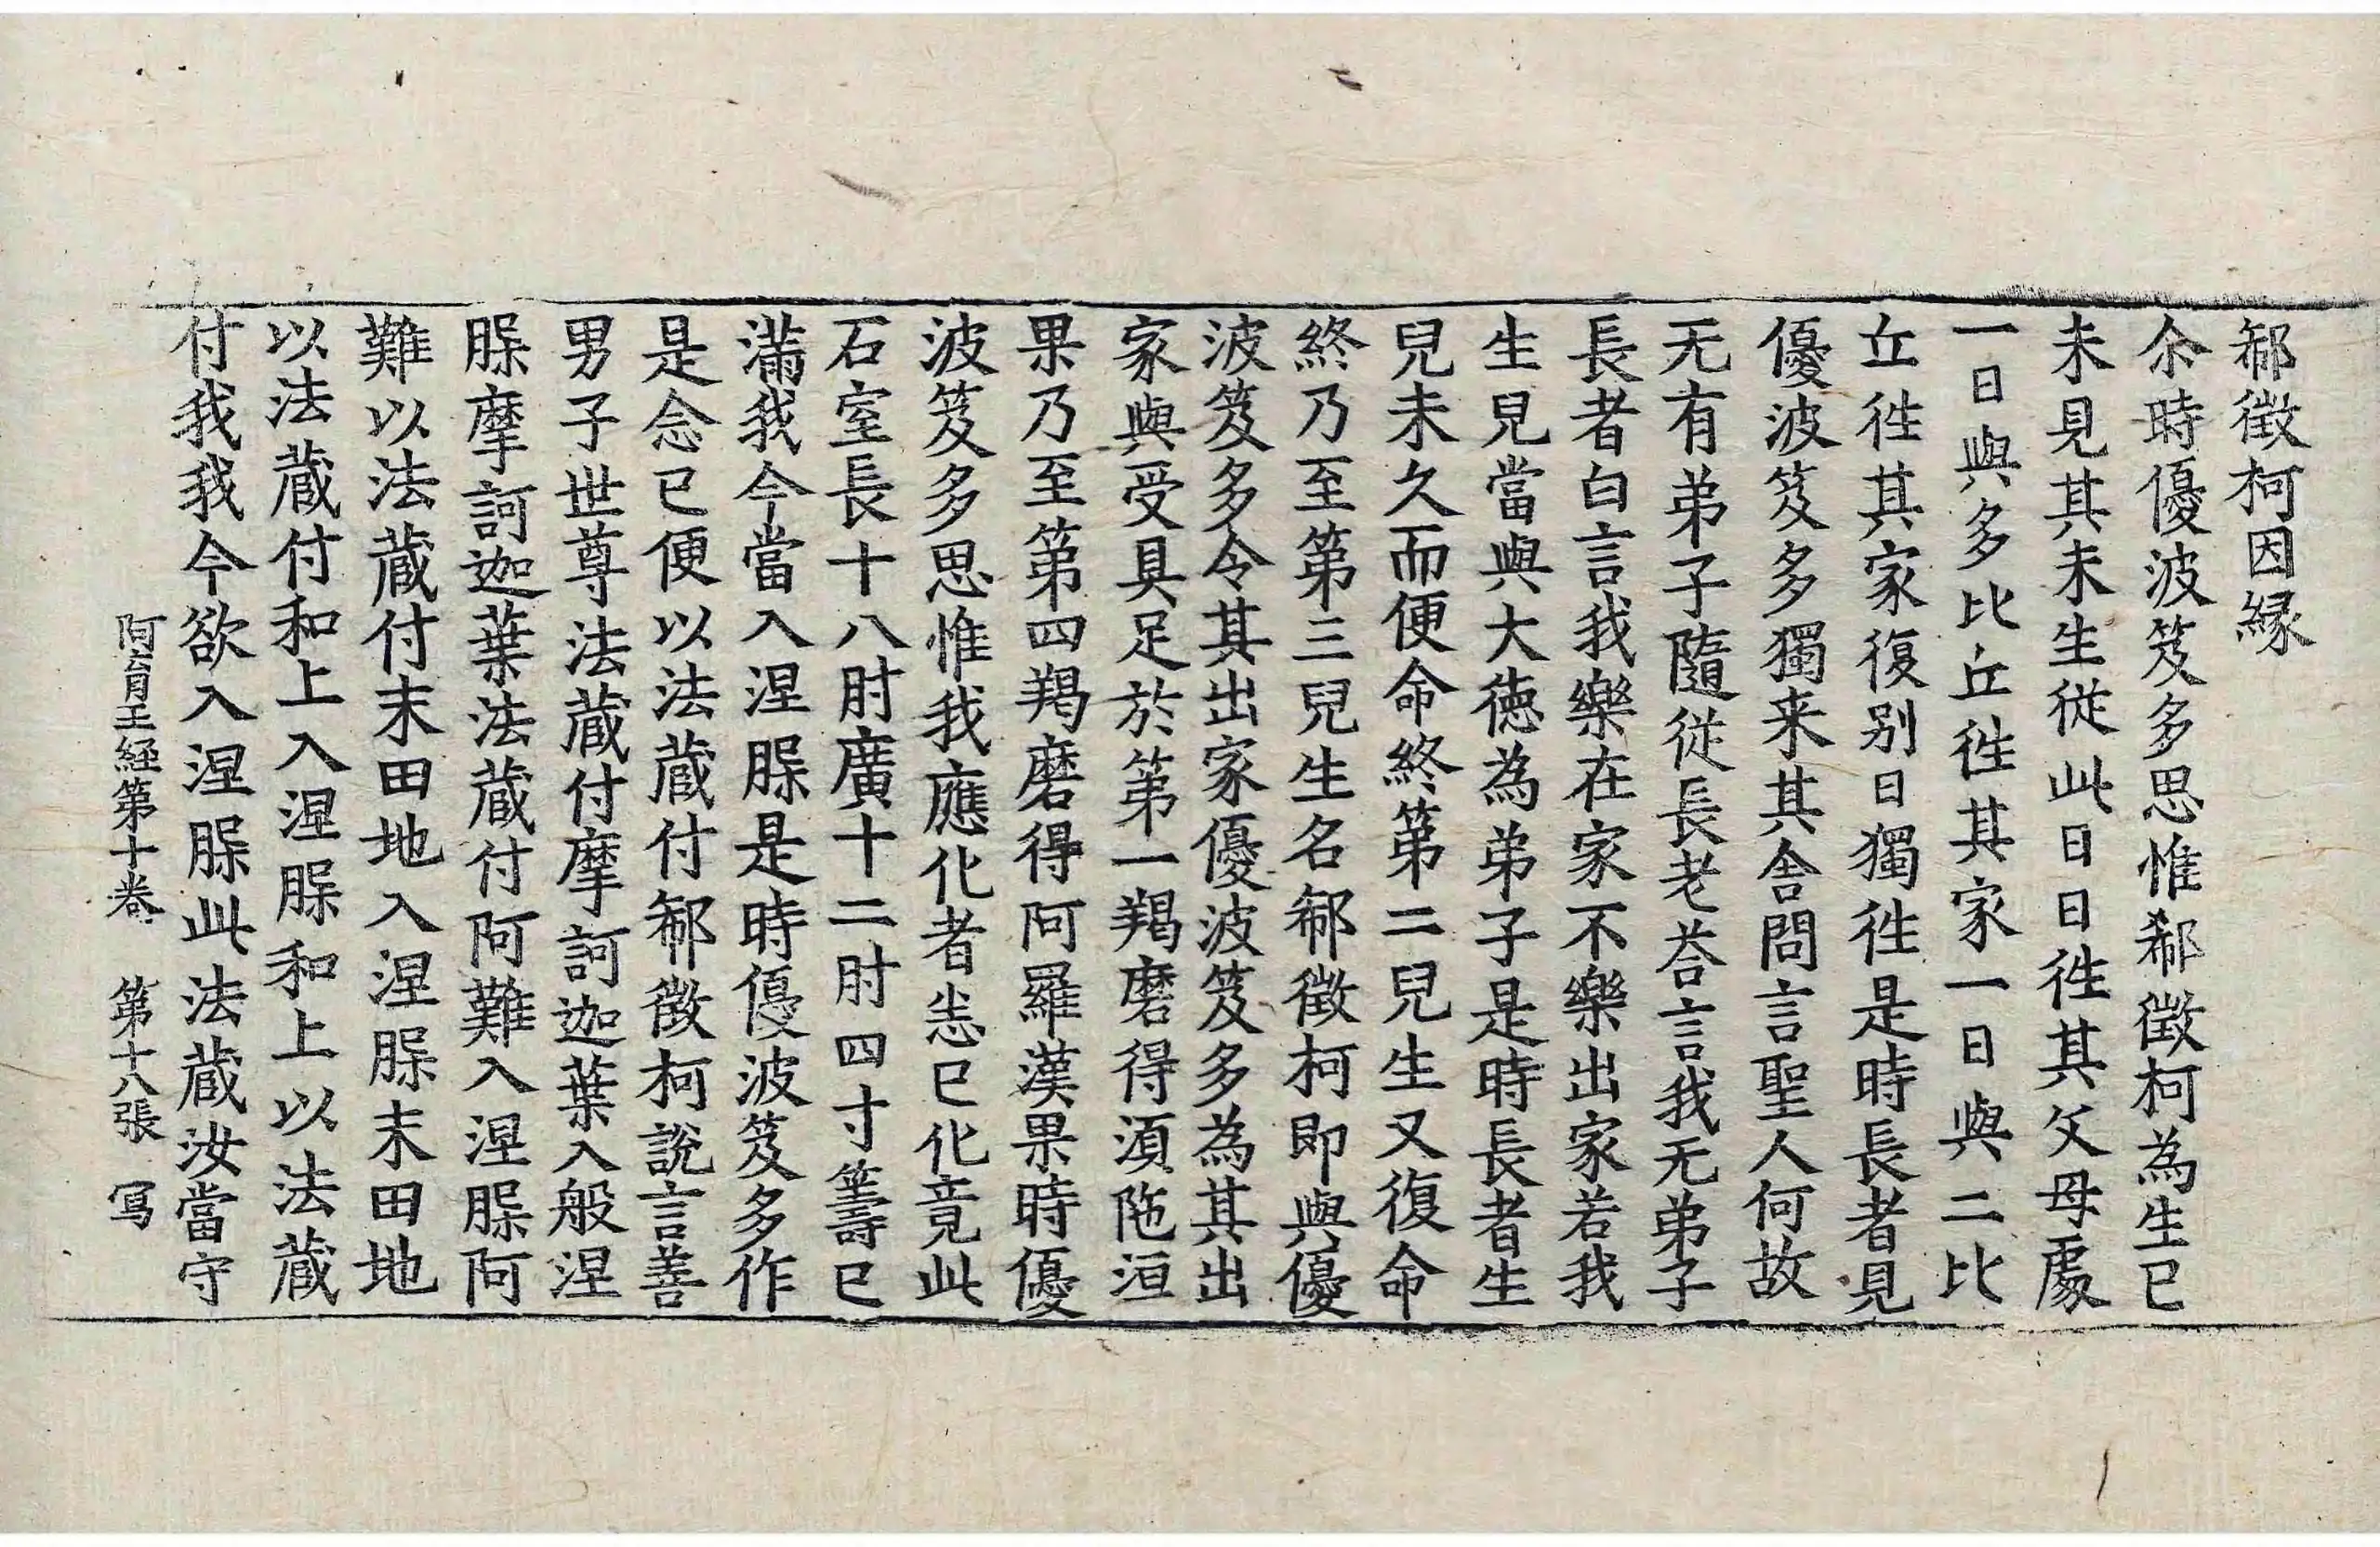 郗徵柯因緣
尒時優波笈多思惟郗徵柯為生已
未見其未生從此日日徃其父母處
一日與多比丘徃其家一日與二比
丘徃其家復別日獨徃是時長者見
優波笈多獨来其舍問言聖人何故
无有弟子隨從長老荅言我无弟子
長者白言我樂在家不樂出家若我
生兒當與大德為弟子是時長者生
兒未久而便命終第二兒生又復命
終乃至第三兒生名郗徵柯即與優
波笈多令其出家優波笈多為其出
家與受具足於第一羯磨得湏陁洹
果乃至第四羯磨得阿羅漢果時優
波笈多思惟我應化者恙已化竟此
石室長十八肘廣十二肘四寸籌已
滿我今當入涅脲是時優波笈多作
是念已便以法蔵付郗徵柯說言善
男子世尊法蔵付摩訶迦葉入般涅
脲摩訶迦葉法蔵付阿難入涅脲阿
難以法蔵付末田地入涅脲末田地
以法蔵付和上入涅脲和上以法蔵
付我我今欲入涅脲此法蔵汝當守
阿育王経第十卷 第十八張 寫